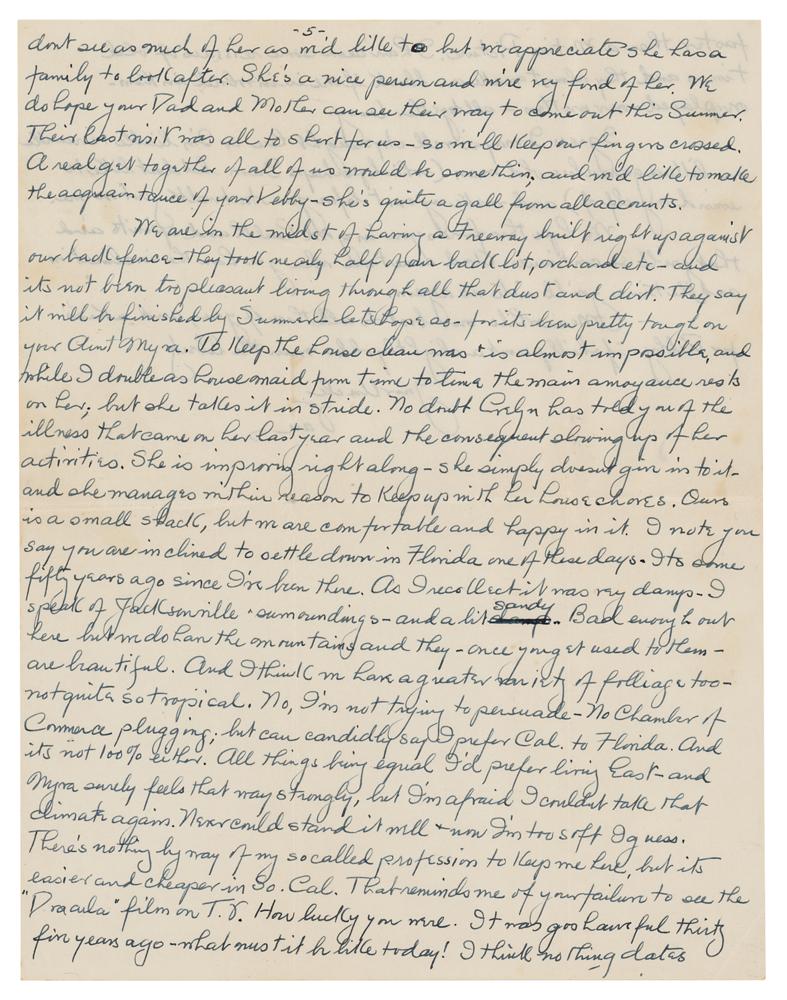 -5-
dont see as much of her as we'd like to but we appreciate she has a
family to look after. She's a nice person and we're very fond of her. We
do hope your Dad and Mother can see their way to come out this Summer.
Their last visit was all to short for us - so we'll keep our fingers crossed.
A real get together of all of us would be somethin, and we'd like to make
the acquaintance of your Vebby - she's quite a gall from all accounts.
We are in the midst of having a Freeway built right up against
our back fence - they took nearly half of our back lot, orchard etc - and
its not been too pleasant living through all that dust and dirt. They say
it will be finished by Summer - lets hope so - for its been pretty tough on
your Aunt Myra. To keep the house clean was + is almost impossible, and
while I double as housemaid from time to time the main annoyance rests
on her; but she takes it in stride. No doubt Evelyn has told you of the
illness that came on her last year and the consequent slowing up of her
activities. She is improving right along - she simply doesnt give in to it -
and she manages within reason to keep up with her house chores. Ours
is a small shack, but we are comfortable and happy in it. I note you
say you are inclined to settle down in Florida one of these days - Its some
fifty years ago since I've been there. As I recollect it was very damp - I
speak of Jacksonville + surroundings - and a bit sandy. Bad enough out
here but we do have the mountains and they - once you get used to them -
are beautiful. And I think we have a greater variety of folliage too -
not quite so tropical. No, I'm not trying to persuade - No Chamber of
Commerce plugging; but can candidly say I prefer Cal. to Florida. And
its not 100% either. All things being equal I'd prefer living East - and
Myra surely feels that way strongly, but I'm afraid I couldnt take that
climate again. Never could stand it well + now I'm too soft I guess.
There's nothing by way of my so called profession to keep me here, but its
easier and cheaper in So. Cal. That reminds me of your failure to see the
"Dracula" film on T.V. How lucky you were. It was goshawful thirty
five years ago - what must it be like today! I think nothing dates